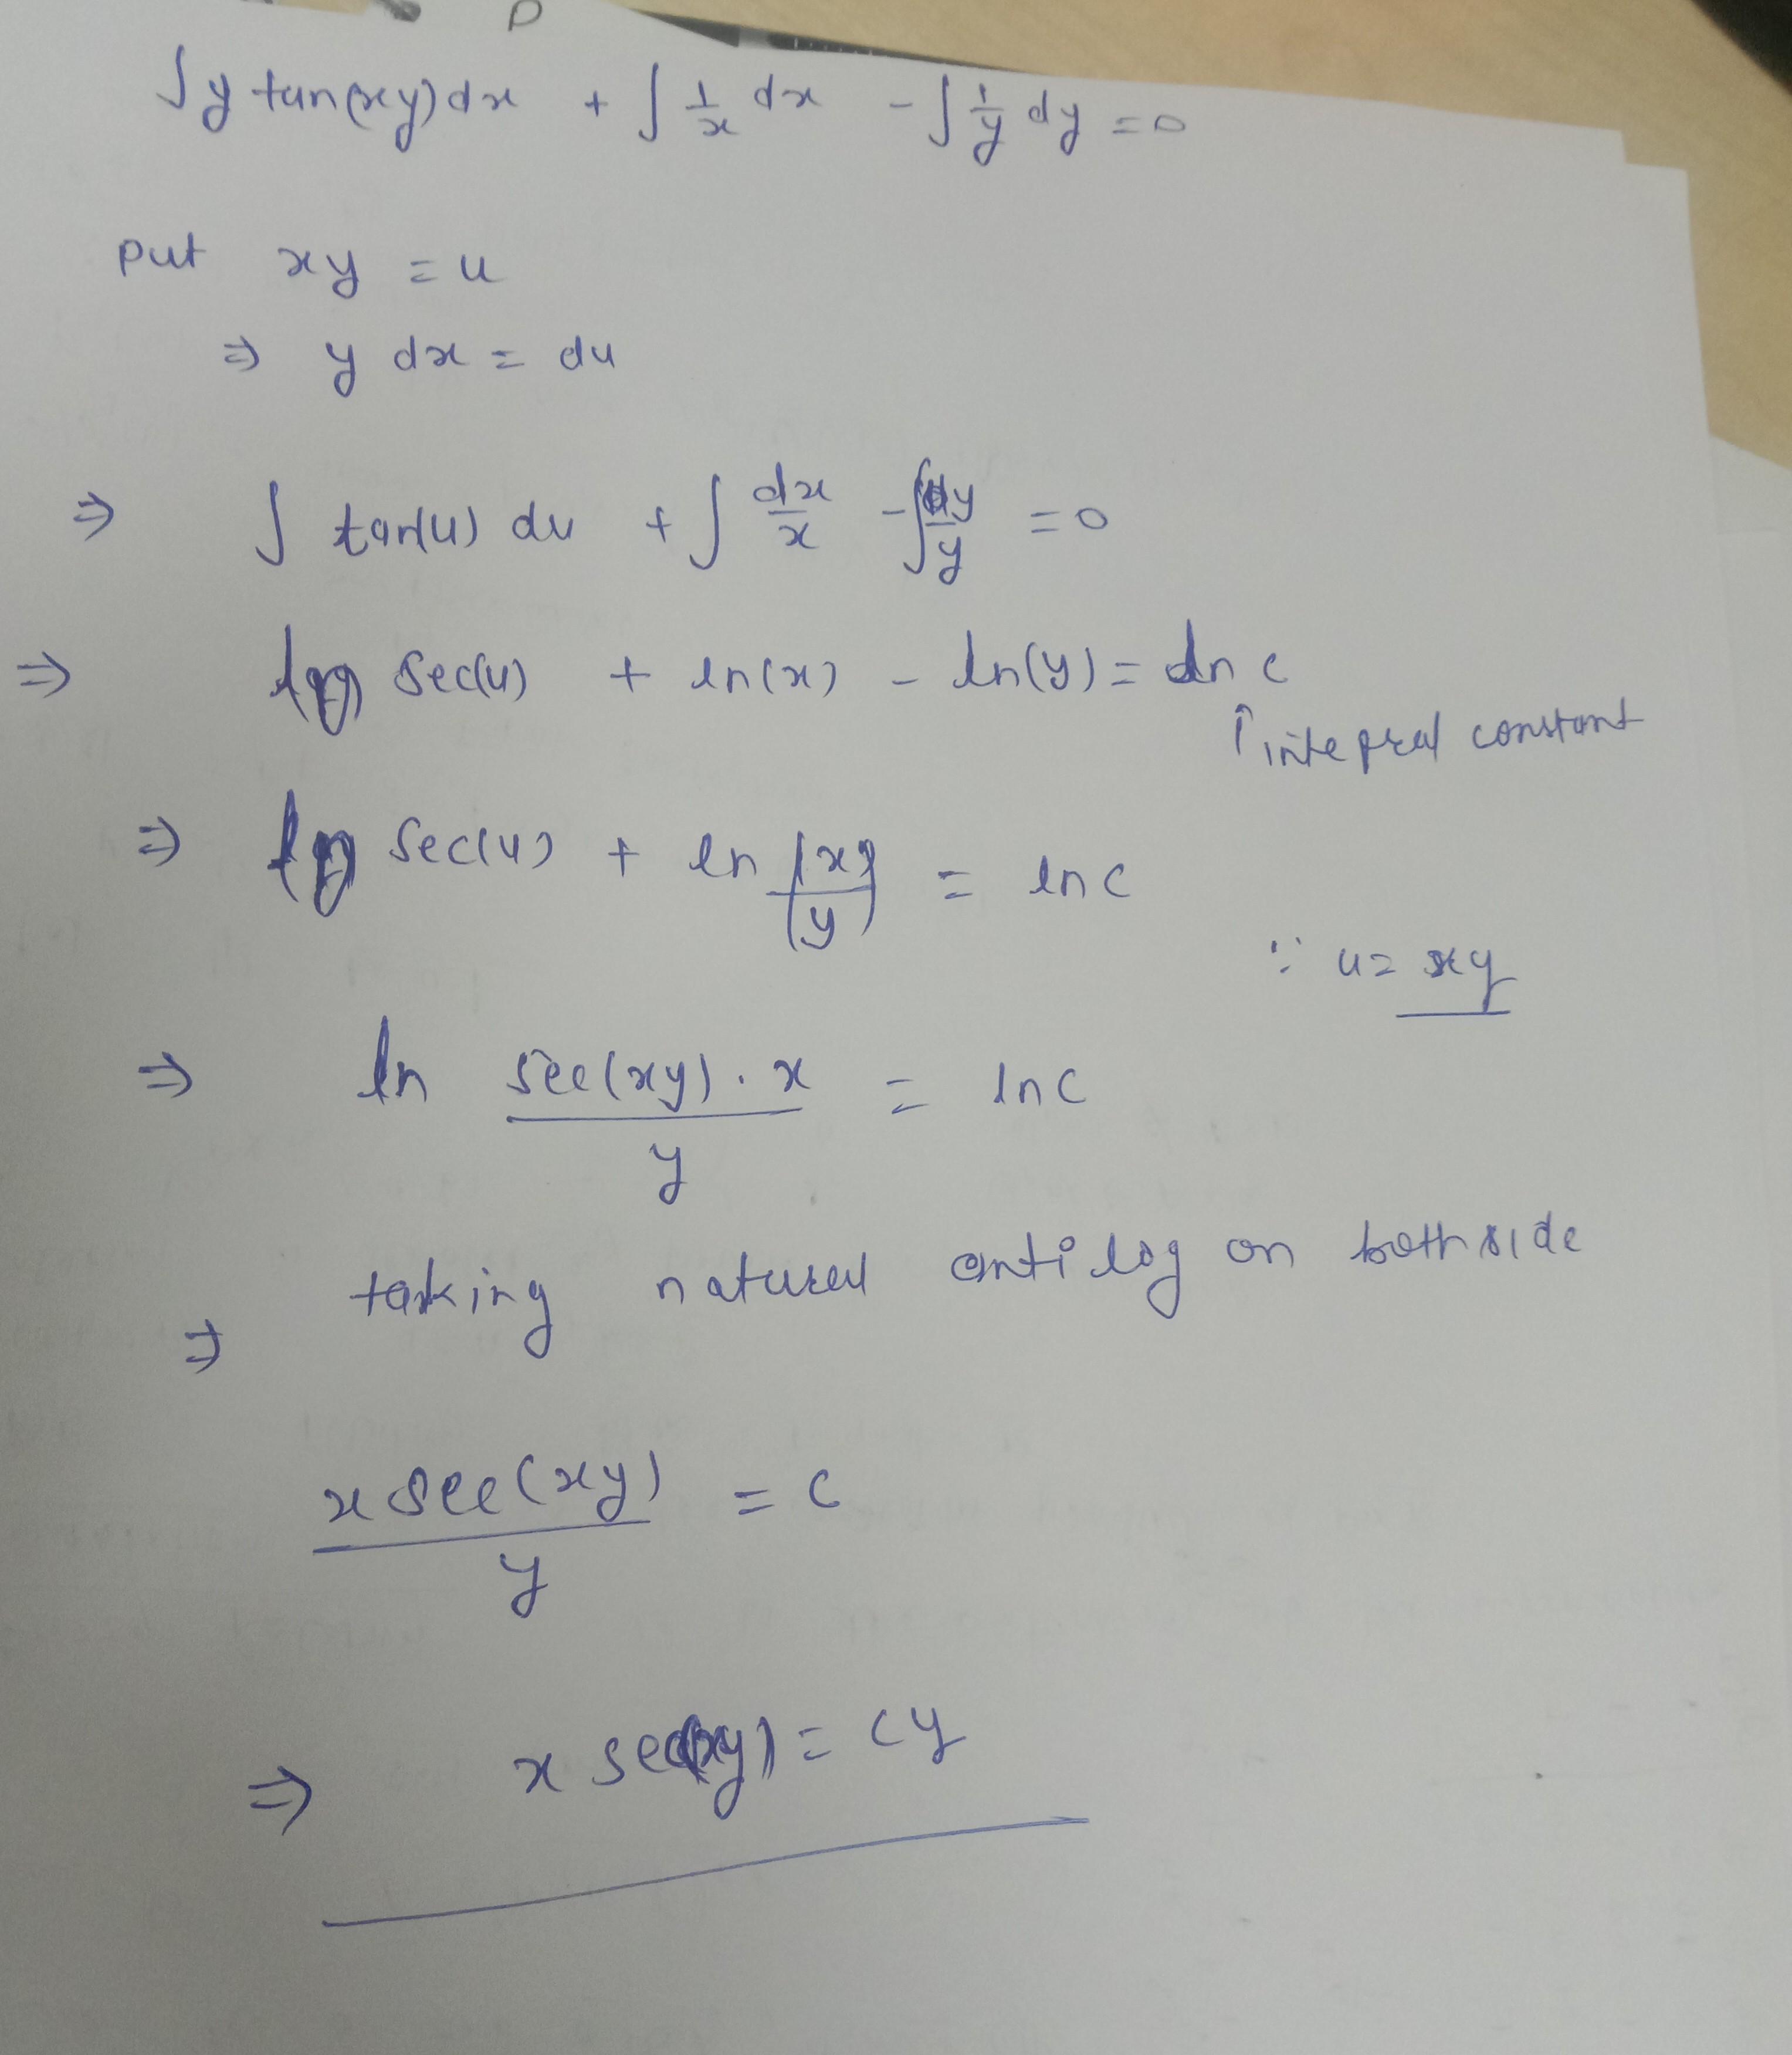 ∫ y tan(xy) dx + ∫ 1/x dx - ∫ 1/y dy = 0
put xy = u
⇒ y dx = du
⇒ ∫ tan(u) du + ∫ dx/x - ∫ dy/y = 0
⇒ log sec(u) + ln(x) - ln(y) = ln c
↑ integral constant
⇒ log sec(u) + ln (x)/(y) = ln c
∵ u = xy
⇒ ln sec(xy) . x / y = ln c
⇒ taking natural antilog on both side
x sec(xy) / y = c
⇒ x sec(xy) = cy